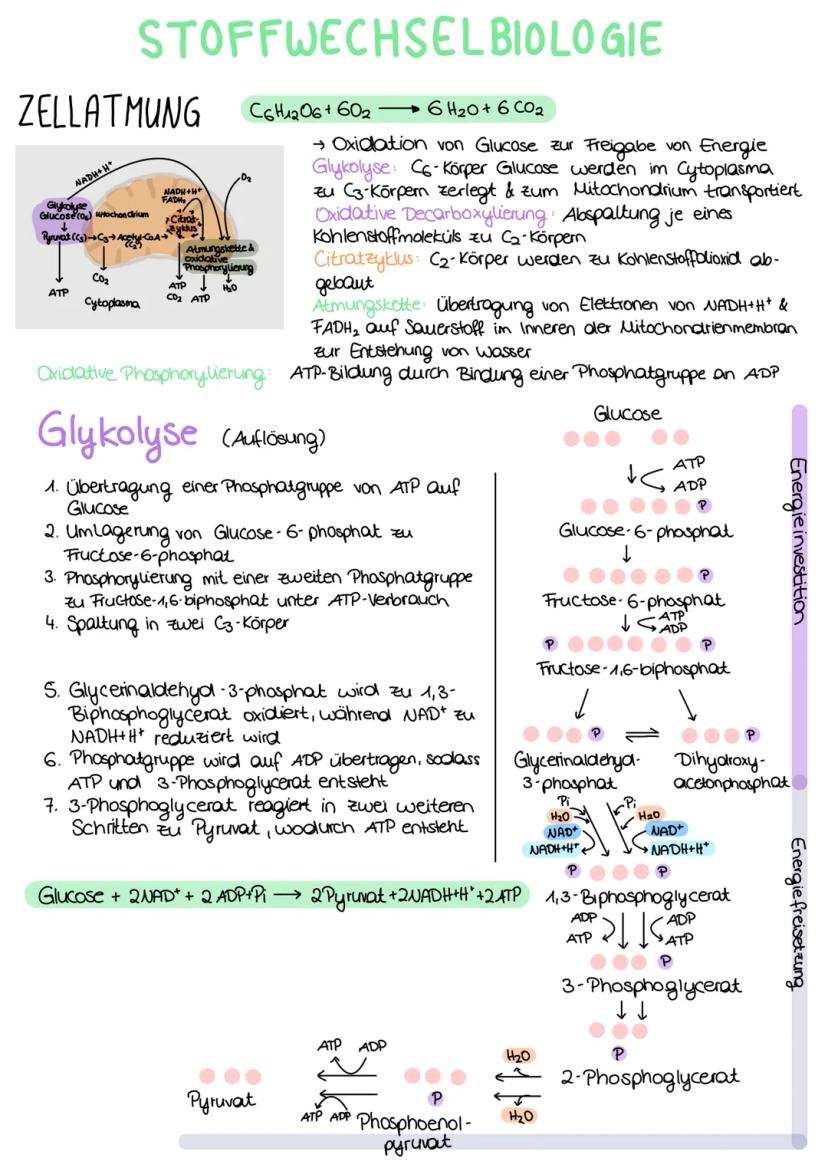 STOFFWECHSELBIOLOGIE
ZELLATMUNG
C6H12O6 + 6O2 → 6 H2O + 6 CO2
→ Oxidation von Glucose zur Freigabe von Energie
Glykolyse: C6-Körper Glucose werden im Cytoplasma
zu C3-Körpern zerlegt & zum Mitochondrium transportiert
Oxidative Decarboxylierung: Abspaltung je eines
Kohlenstoffmoleküls zu C2-Körpern
Citratzyklus: C2-Körper werden zu Kohlenstoffdioxid ab-
gebaut
Atmungskette: Übertragung von Elektronen von NADH+H+ &
FADH2 auf Sauerstoff im Inneren der Mitochondrienmembran
zur Entstehung von Wasser
Oxidative Phosphorylierung: ATP-Bildung durch Bindung einer Phosphatgruppe an ADP
NADH+H+
O2
NADH+H+
FADH2
Glykolyse
Glucose(C6)
Mitochondrium
Citrat-
zyklus
Pyruvat (C3) → C3 → Acetyl-CoA →
(C2)
Atmungskette &
oxidative
Phosphorylierung
ATP
CO2
Cytoplasma
ATP
CO2
ATP
H2O
Glykolyse (Auflösung)
1. Übertragung einer Phosphatgruppe von ATP auf
Glucose
2. Umlagerung von Glucose-6-phosphat zu
Fructose-6-phosphat
3. Phosphorylierung mit einer zweiten Phosphatgruppe
zu Fructose-1,6-biphosphat unter ATP-Verbrauch
4. Spaltung in zwei C3-Körper
5. Glycerinaldehyd-3-phosphat wird zu 1,3-
Biphosphoglycerat oxidiert, während NAD+ zu
NADH+H+ reduziert wird
6. Phosphatgruppe wird auf ADP übertragen, sodass
ATP und 3-Phosphoglycerat entsteht
7. 3-Phosphoglycerat reagiert in zwei weiteren
Schritten zu Pyruvat, wodurch ATP entsteht
Glucose + 2NAD+ + 2 ADP+Pi → 2Pyruvat+2NADH+H++2ATP
Glucose
ATP
ADP
P
Glucose-6-phosphat
P
Fructose-6-phosphat
ATP
ADP
P P
Fructose-1,6-biphosphat
P ⇌ P
Glycerinaldehyd-
3-phosphat
Dihydroxy-
acetonphosphat
Pi Pi
H2O H2O
NAD+ NAD+
NADH+H+ NADH+H+
P P
1,3-Biphosphoglycerat
ADP ADP
ATP ATP
P
3-Phosphoglycerat
P
2-Phosphoglycerat
H2O
H2O
P
Phosphoenol-
pyruvat
ATP ADP
ATP ADP
Pyruvat
Energieinvestition
Energiefreisetzung